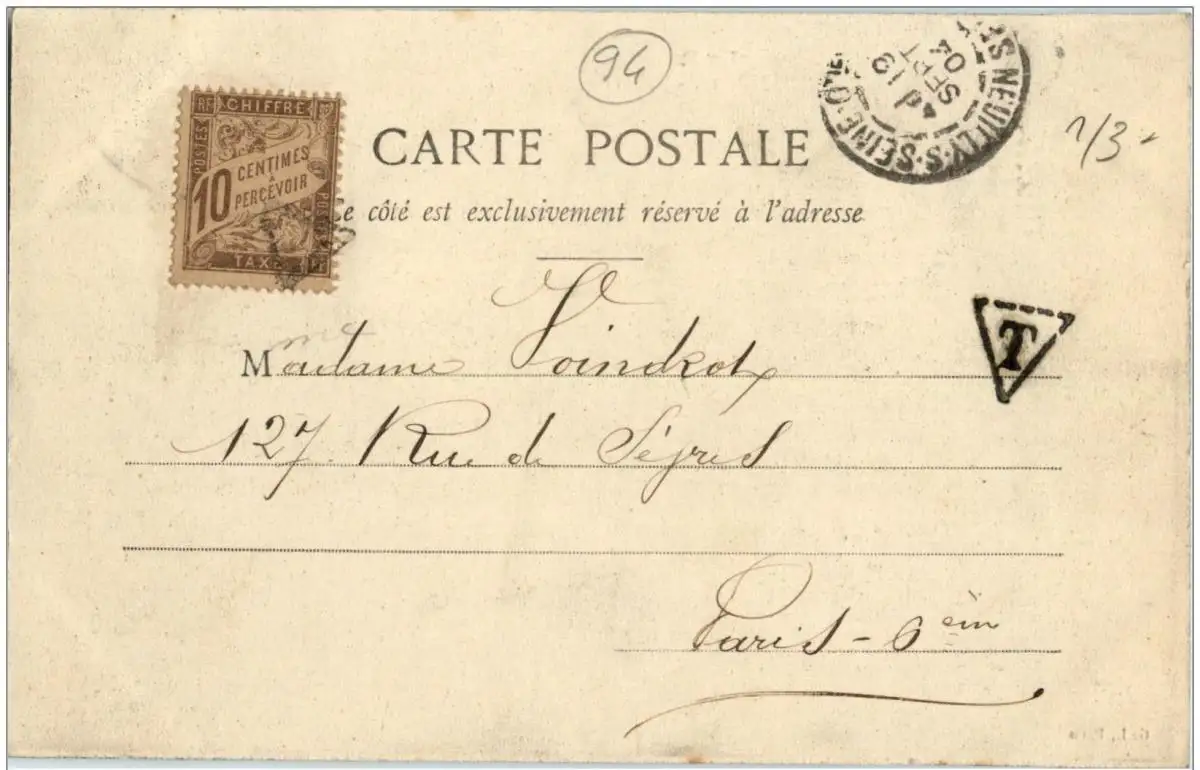 94
RF CHIFFRE RF
POSTES
10 CENTIMES
À PERCEVOIR
POSTES
TAXE RF
NEUILLY-S-SEINE
SEPT
04
CARTE POSTALE
1/3-
Ce côté est exclusivement réservé à l'adresse
T
Madame Voindrot
127 Rue de Sèvres
Paris - 6èm